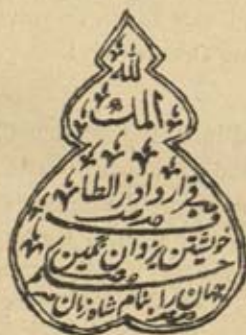 لله
الملك
قرار داد ز الطاف
خویشتن یزدان نگین
حکم جهان را بنام شاه زمان